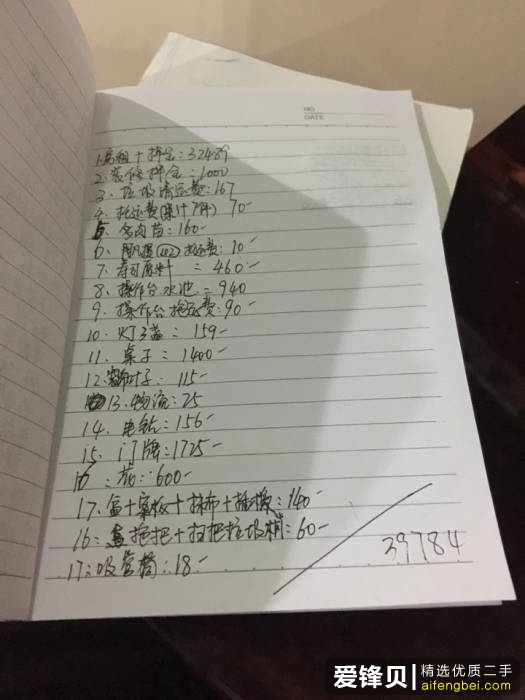 NO
DATE
1.房租+押金:32489
2.装修押金:1000
3.垃圾清运费:167
4.托运费(累计7件) 70-
5.多肉苗:160-
6.托运费:10-
7.寿司原料=460-
8.操作台水池=940
9.操作台拖运费:90-
10.灯3盏=159-
11.桌子=1400-
12.:115-
13.物流:25
14.电钻=156-
15.门牌:1725-
16:600-
17.+案板+抹布+:140-
16:拖把+扫把垃圾桶:60-
17:吸管筒:18-
39784
爱锋贝 精选优质二手
aifengbei.com